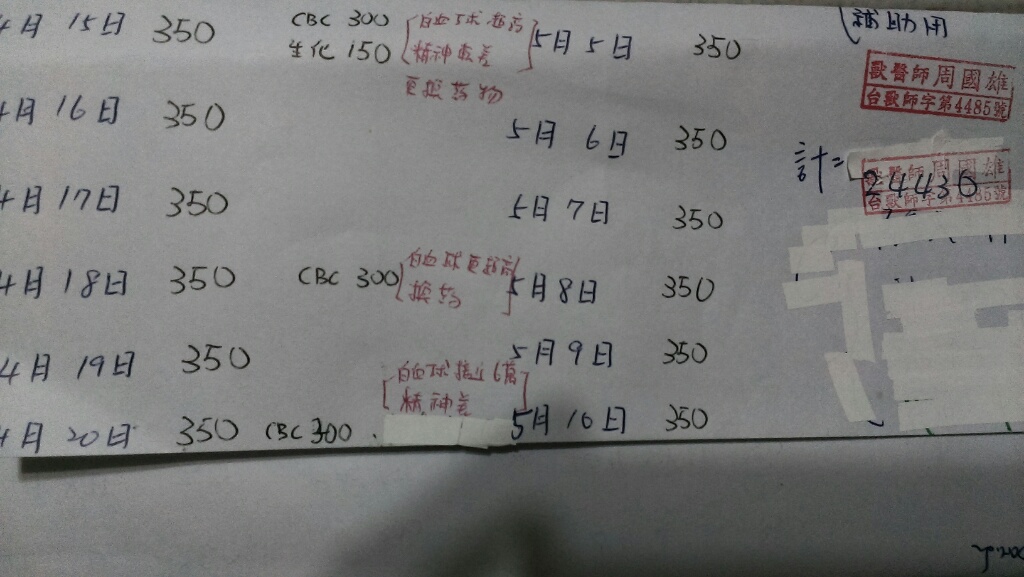 4月 15日 350 CBC 300
生化 150
白血球超高
精神較差
更換药物
4月 16日 350
4月 17日 350
4月 18日 350 CBC 300
白血球更超高
換药
4月 19日 350
白血球接近6萬
精神差
4月 20日 350 CBC 300
5月 5日 350
5月 6日 350
5月 7日 350
5月 8日 350
5月 9日 350
5月 10日 350
補助用
獸醫師 周國雄
台獸師字第4485號
計=24430
獸醫師 周國雄
台獸師字第4485號